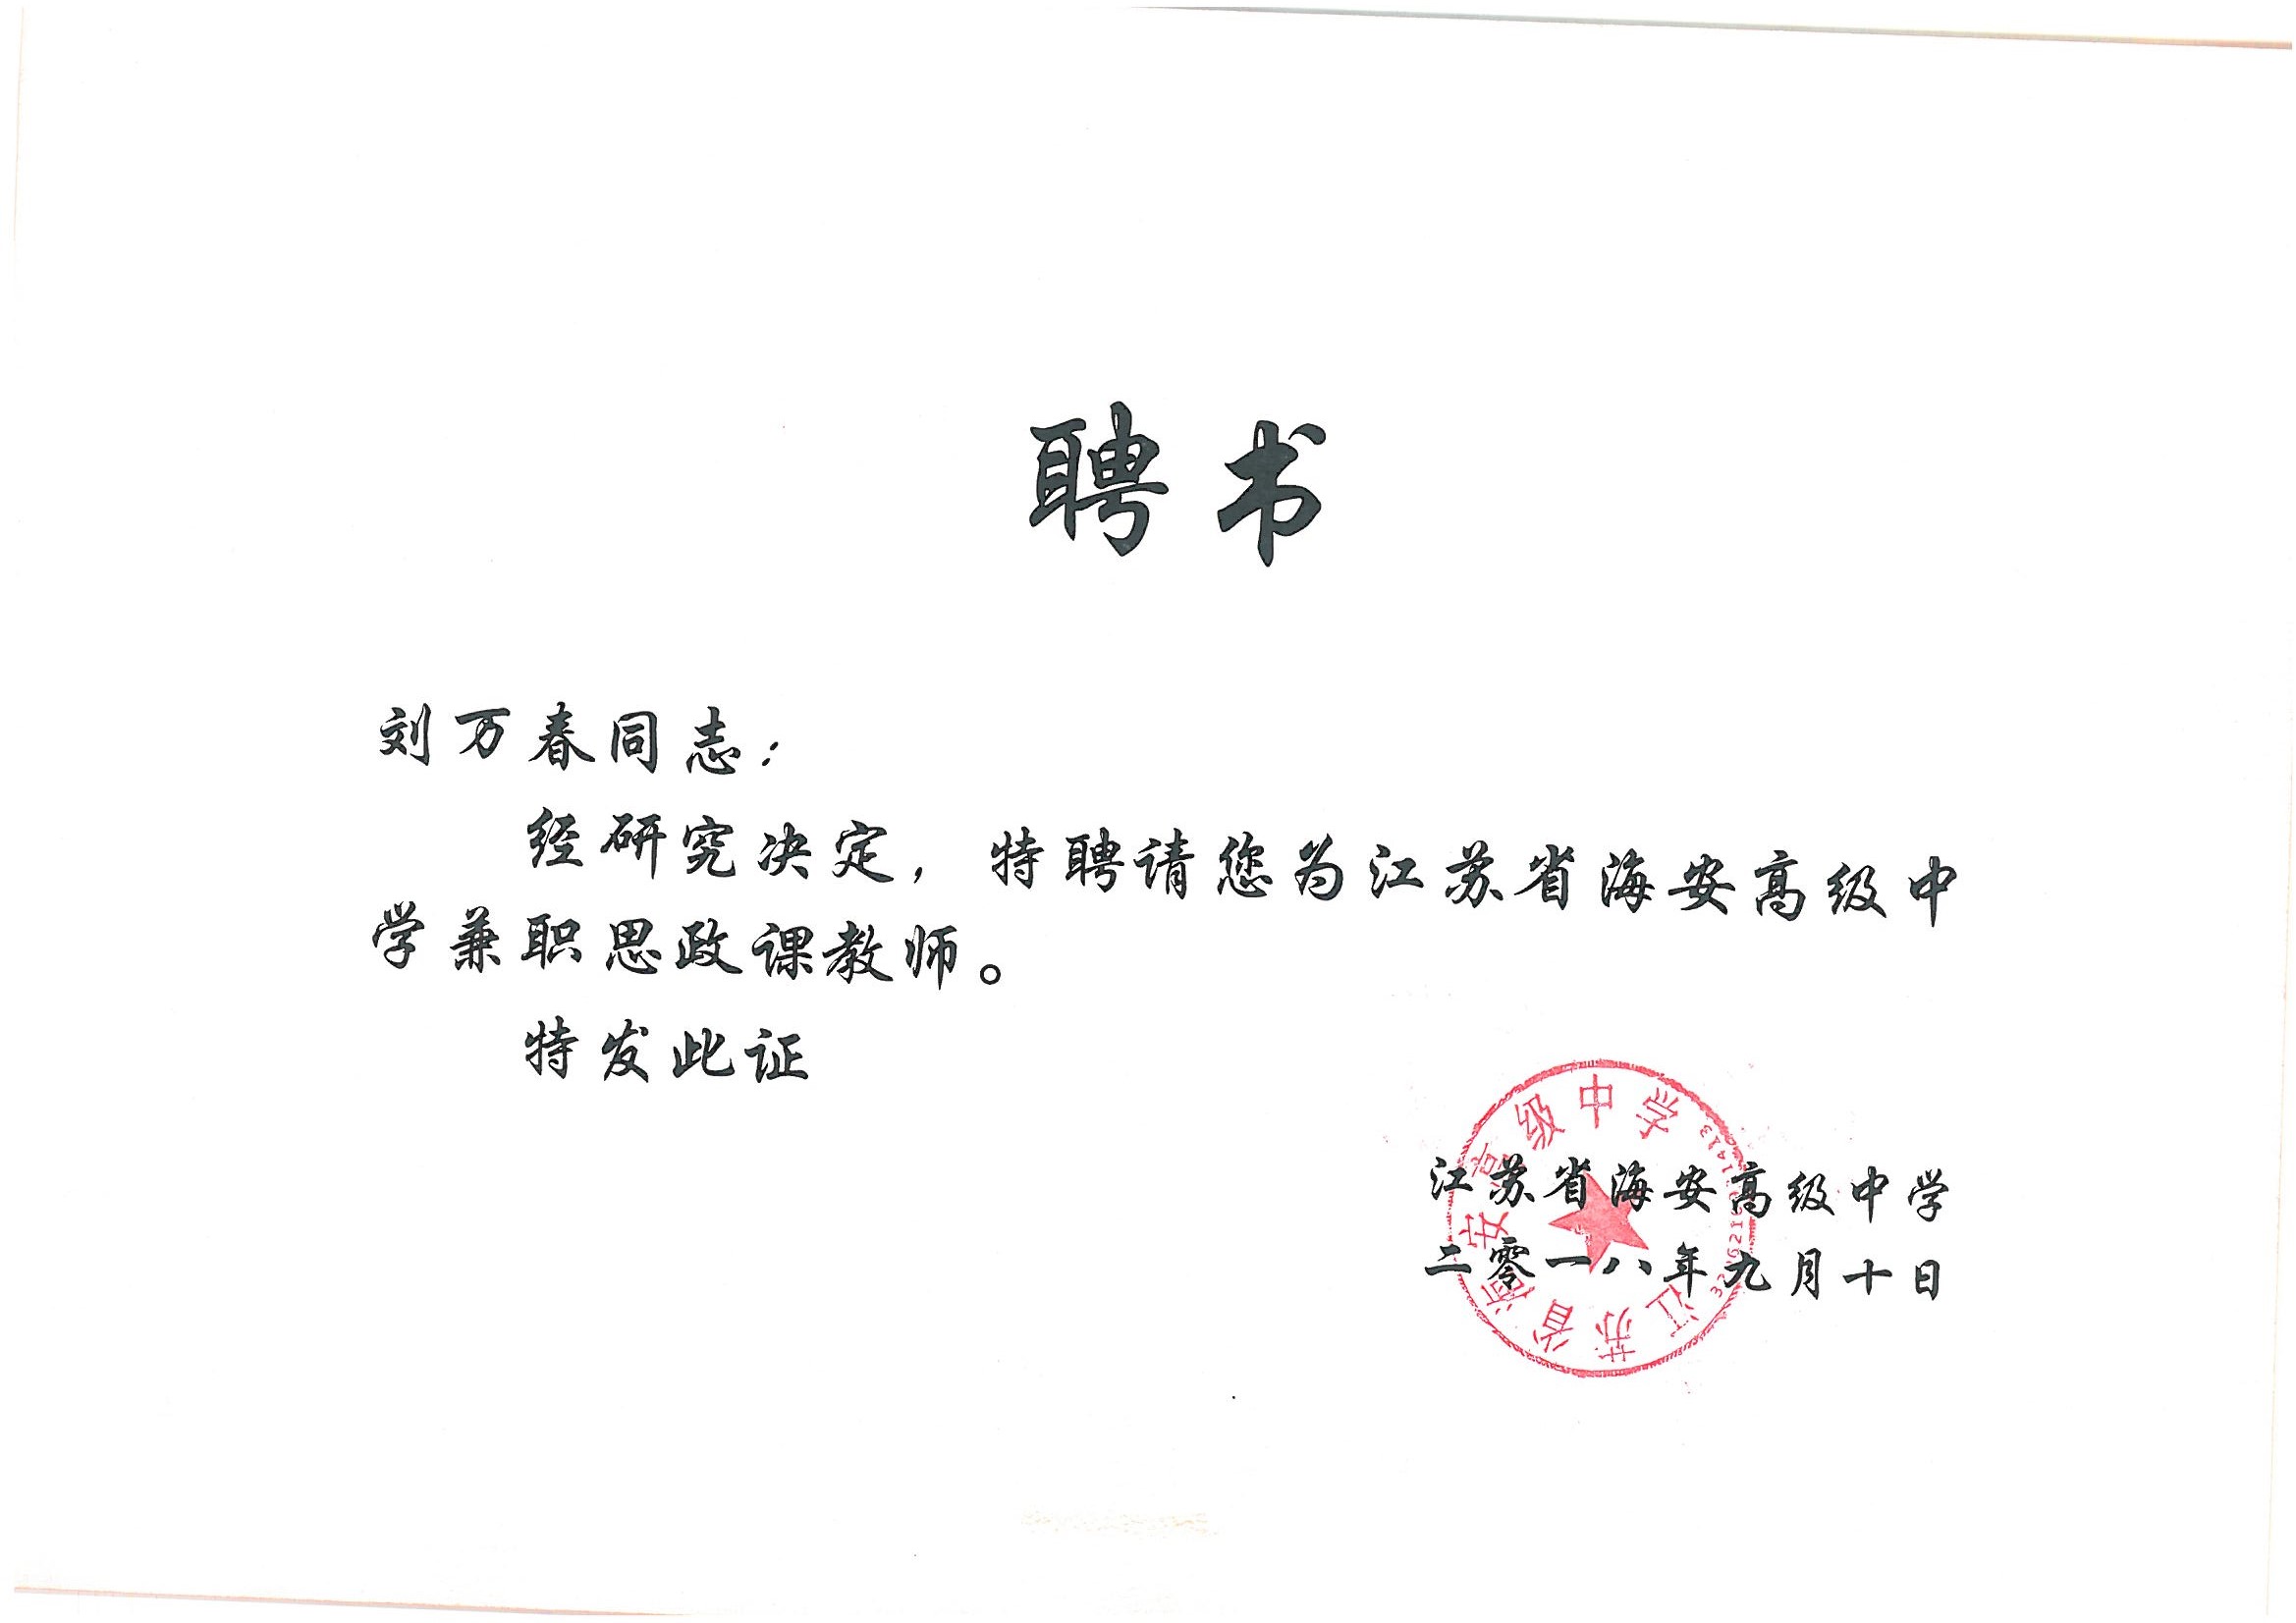 聘书
刘万春同志：
经研究决定，特聘请您为江苏省海安高级中
学兼职思政课教师。
特发此证
江苏省海安高级中学
二零一八年九月十日
江苏省海安高级中学